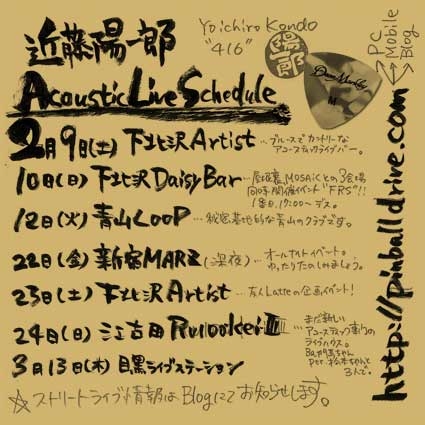 近藤陽一郎
Yoichiro Kondo
"416"
陽一郎
Dean Markley
M
PC
Mobile
Blog
Acoustic Live Schedule
2月9日(土) 下北沢Artist
…ブルースでカントリーな
アコースティックライブバー。
10日(日) 下北沢DaisyBar
MOSAiCとの3会場
同時開催イベント"FRS"!!
12日(火) 青山LOOP
…秘密基地的な青山のクラブです。
22日(金) 新宿MARZ(深夜)
…オールナイトイベント。
ゆったりたのしみましょう。
23日(土) 下北沢Artist
…友人Latteの企画イベント!
24日(日) 江古田
まだ新しい
アコースティック専門の
ライブハウス。
3人で。
3月13日(木) 目黒ライブステーション
☆ストリートライブ情報はBlogにてお知らせします。
http://pinballdrive.com